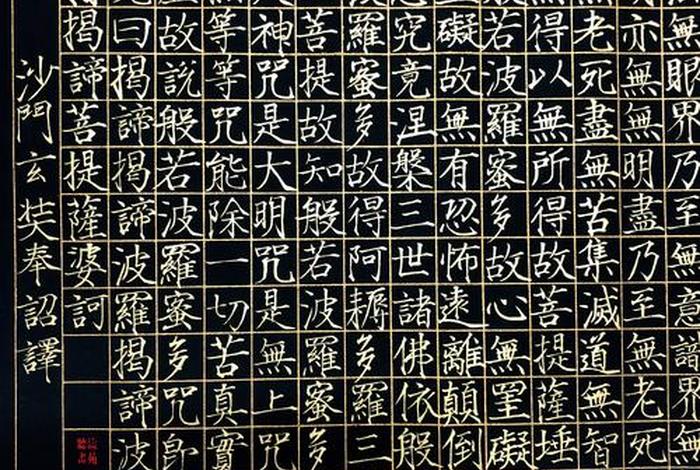 無眼界乃至無意識界無
亦無無明盡乃至無老死
老死盡無苦集滅道無智
得以無所得故菩提薩埵
若波羅蜜多故心無罣礙
礙故無有恐怖遠離顛倒
究竟涅槃三世諸佛依般
羅蜜多故得阿耨多羅三
菩提故知般若波羅蜜多
神咒是大明咒是無上咒
等等咒能除一切苦真實
故說般若波羅蜜多咒即
曰揭諦揭諦波羅揭諦波
揭諦菩提薩婆訶
沙門玄奘奉詔譯